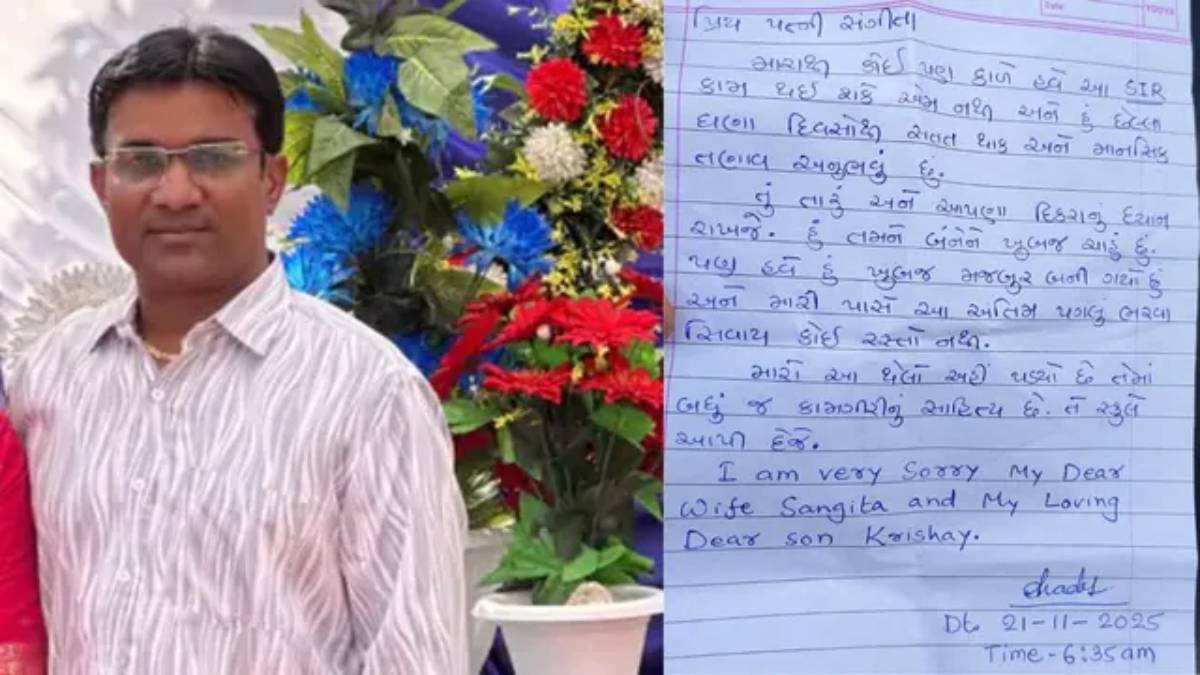 Date
પ્રિય પત્ની સંગીતા
મારાથી કોઈ પણ કાળે હવે આ SIR
કામ થઈ શકે એમ નથી અને હું છેલ્લા
ઘણા દિવસોથી સતત થાક અને માનસિક
તણાવ અનુભવું છું.
તું તારું અને આપણા દિકરાનું ધ્યાન
રાખજે. હું તમને બંનેને ખુબજ ચાહું છું.
પણ હવે હું ખુબજ મજબુર બની ગયો છું
અને મારી પાસે આ અંતિમ પગલું ભરવા
સિવાય કોઈ રસ્તો નથી.
મારો આ થેલો અહીં પડ્યો છે તેમાં
બધું જ કામગીરીનું સાહિત્ય છે. તે સ્કુલે
આપી દેજે.
I am very Sorry My Dear
Wife Sangita and My Loving
Dear son Krishay.
Dt. 21-11-2025
Time - 6:35am